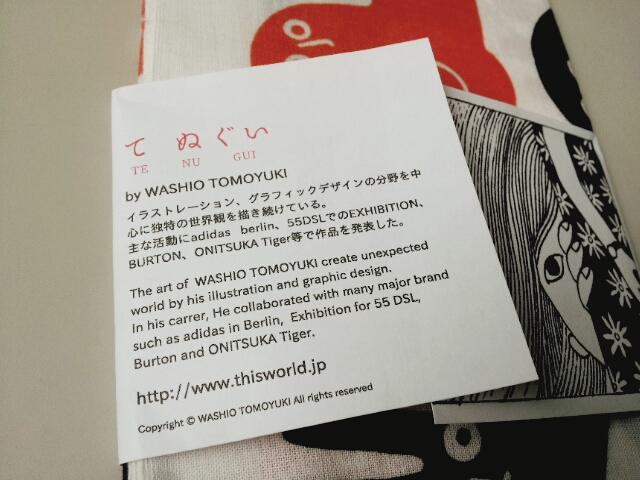 てぬぐい
TE NU GUI
by WASHIO TOMOYUKI
イラストレーション、グラフィックデザインの分野を中
心に独特の世界観を描き続けている。
主な活動にadidas berlin、55DSLでのEXHIBITION、
BURTON、ONITSUKA Tiger等で作品を発表した。
The art of WASHIO TOMOYUKI create unexpected
world by his illustration and graphic design.
In his carrer, He collaborated with many major brand
such as adidas in Berlin, Exhibition for 55 DSL,
Burton and ONITSUKA Tiger.
http://www.thisworld.jp
Copyright © WASHIO TOMOYUKI All rights reserved